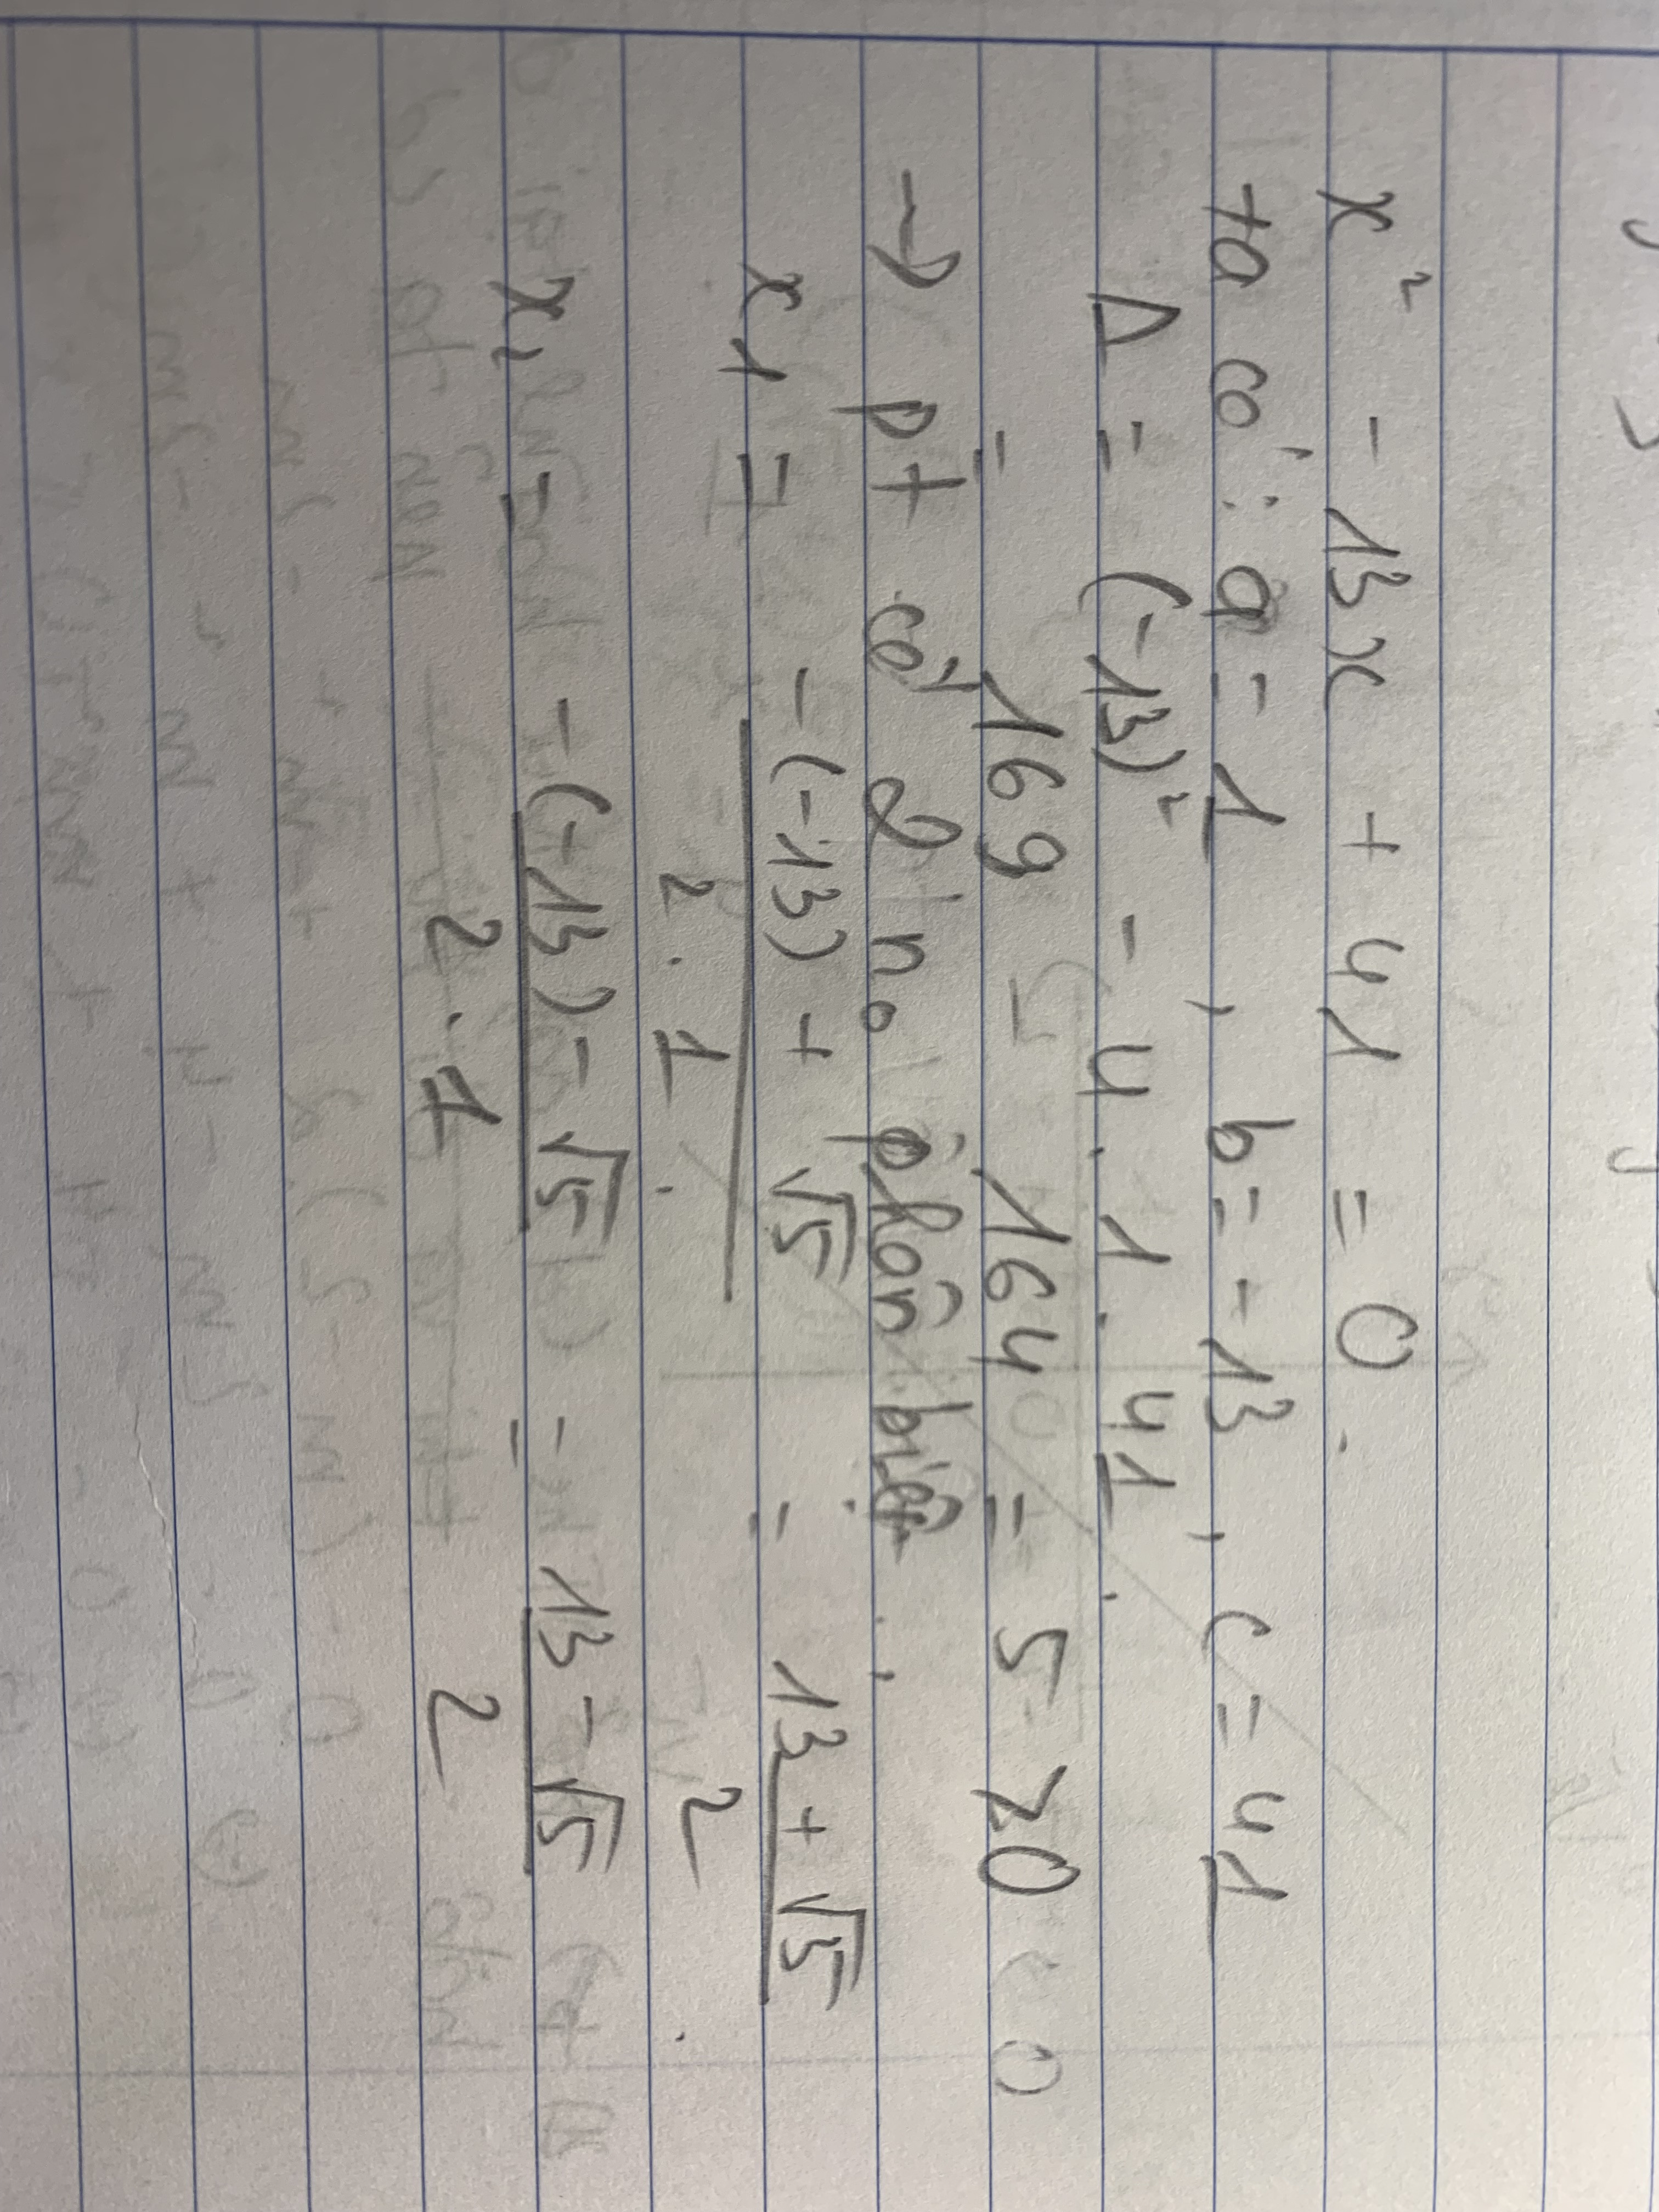 x² - 13x + 41 = 0.
ta có: a = 1, b = -13, c = 41
Δ = (-13)² - 4.1.41.
= 169 - 164 = 5 > 0
→ pt có 2 no phân biệt.
x1 = -(-13) + √5 / 2.1. = 13 + √5 / 2.
x2 = -(-13) - √5 / 2.1 = 13 - √5 / 2